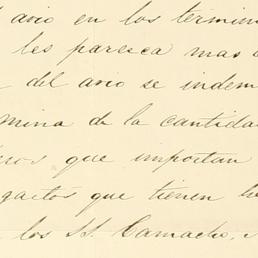 avio en los termin
les paresca mas
del avio se indem
mina de la cantida
que importan
gastos que tienen
los SS. Camacho,